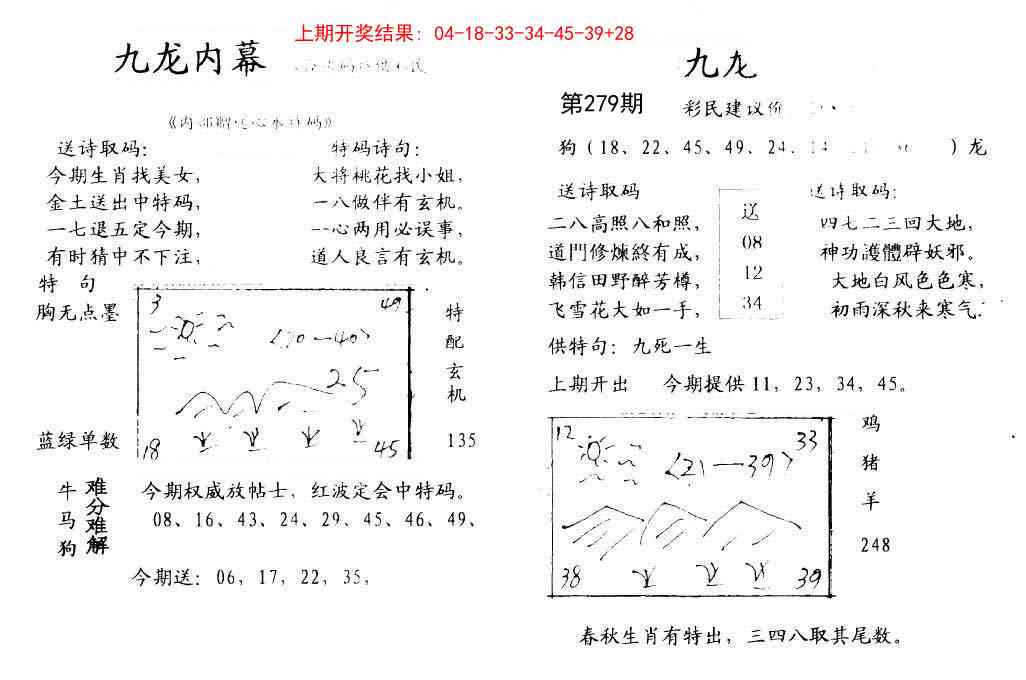 上期开奖结果：04-18-33-34-45-39+28
九龙内幕
送诗取码：
今期生肖找美女，
金土送出中特码，
一七退五定今期，
有时猜中不下注，
特码诗句：
大将桃花找小姐，
一八做伴有玄机。
一心两用必误事，
道人良言有玄机。
特 句
胸无点墨
蓝绿单数
3
49
〈30—40〉
25
18
45
特
配
玄
机
135
牛
马
狗
难
分
难
解
今期权威放帖士，红波定会中特码。
08、16、43、24、29、45、46、49、
今期送：06，17，22，35，
九龙
第279期
彩民建议价
狗（18、22、45、49、24、14 ）龙
送诗取码
二八高照八和照，
道門修煉終有成，
韩信田野醉芳樽，
飞雪花大如一手，
送
08
12
34
送诗取码：
四七二三回大地，
神功護體辟妖邪。
大地白风色色寒，
初雨深秋来寒气.
供特句：九死一生
上期开出 今期提供11，23，34，45。
12
33
〈21—39〉
38
39
鸡
猪
羊
248
春秋生肖有特出，三四八取其尾数。